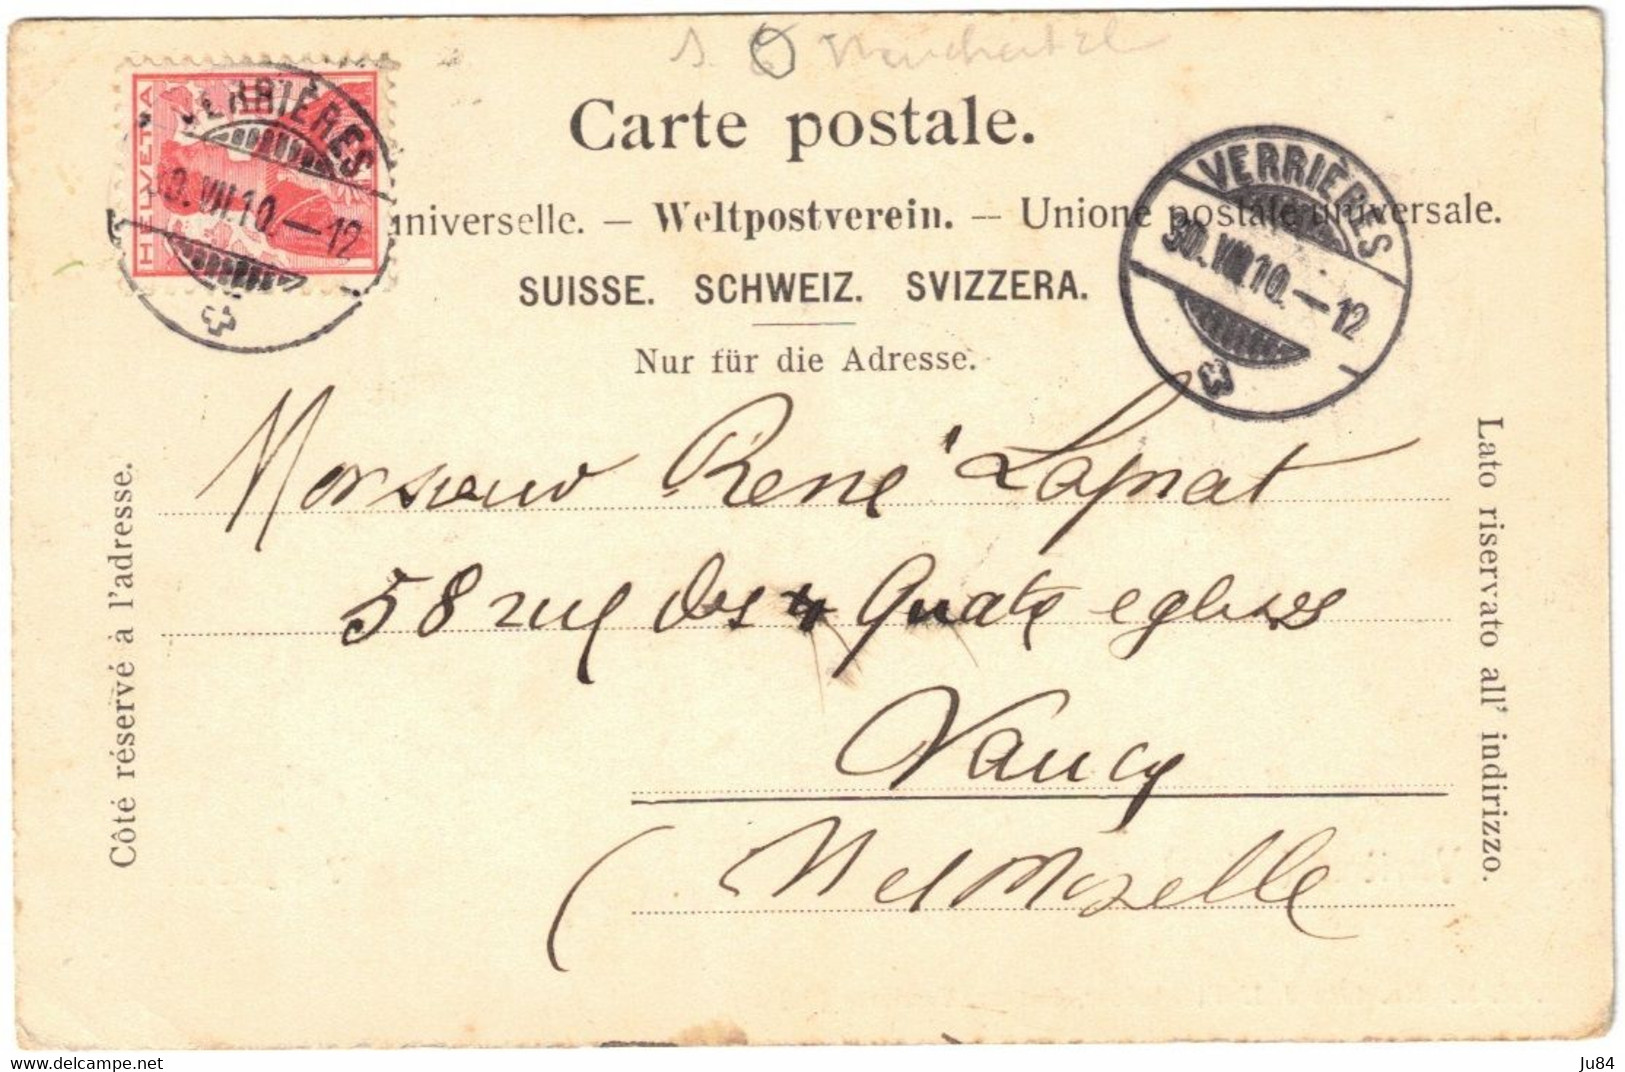 Carte postale.
universelle. — Weltpostverein. — Unione postale universale.
SUISSE. SCHWEIZ. SVIZZERA.
Nur für die Adresse.
HELVETIA
VERRIÈRES
30.VII.10.—12
VERRIÈRES
30.VIII10.—12
Monsieur René Lapnat
58 rue des 4 Quatre eglises
Nancy
(M et Moselle
Côté réservé à l'adresse.
Lato riservato all' indirizzo.
Ju84